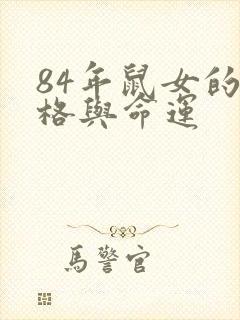 84年鼠女的
格與命運
馬警官